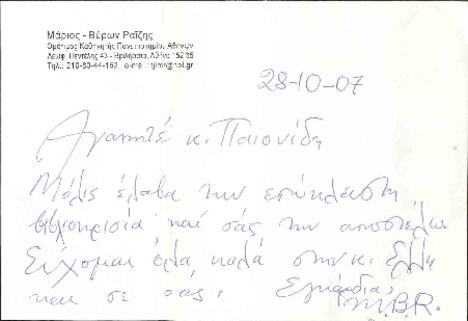 Μάριος - Βύρων Ραΐζης
Ομότιμος Καθηγητής Πανεπιστημίου Αθηνών
Λεωφ. Πεντέλης 43 - Βριλήσσια, Αθήνα 152 35
Τηλ.: 210-80-44-162
28-10-07
Αγαπητέ κ. Παιονίδη
Μόλις έλαβα την εσώκλειστη
βιβλιοκρισία και σας την αποστέλλω.
Εύχομαι όλα καλά στην κ. Έλλη
και σε σάς. Εγκάρδια,
M.B.R.